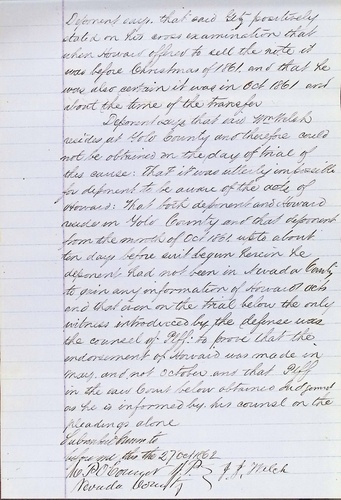 Deponent says that said Getz positively
stated on his cross examination that
when Howard offered to sell the note it
was before Christmas of 1861, and that he
was also certain it was in Oct 1861 and
about the time of the transfer
Deponent says that said Wm Welsh
resides at Yolo County and therefore could
not be obtained on the day of trial of
this cause: that it was utterly impossible
for deponent to be aware of the acts of
Howard: That both deponent and Howard
reside in Yolo County and that deponent
from the month of Oct 1861, up to about
ten days before suit begun herein he
deponent had not been in Nevada County
to gain any information of Howard acts
and that even on the trial below the only
witness introduced by the defense was
the counsel of Plff: to prove that the
endorsement of Howard was made in
May, and not October and that Plff
in the said Court below obtained Judgment
as he is informed by his counsel on the
pleadings alone
Subscribed &sworn to
before me this the 27 Oct 1862
J. J. Welch
Nevada County